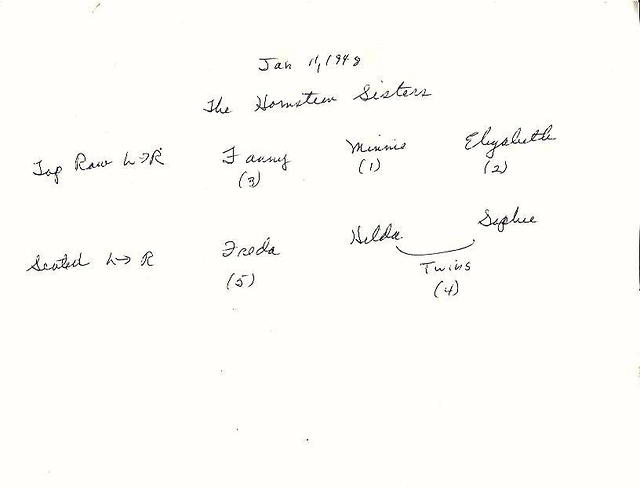 Jan 11, 1948
The Hornstein Sisters
Top Row L→R Fanny Minnie Elizabeth
(3) (1) (2)
Seated L→R Freda Hilda Sophie
Twins
(5) (4)